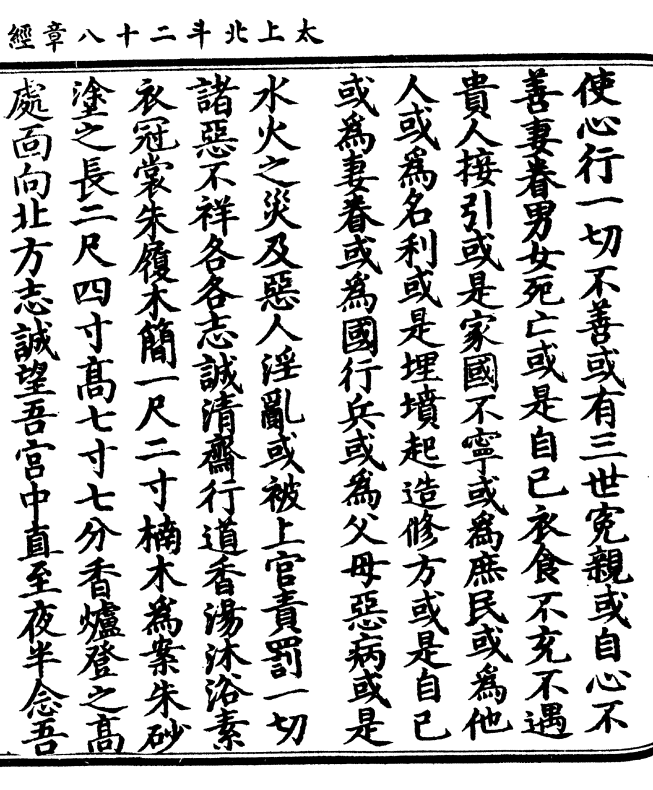 太上北斗二十八章經
使心行一切不善或有三世寃親或自心不
善妻眷男女死亡或是自己衣食不充不遇
貴人接引或是家國不寧或為庶民或為他
人或為名利或是埋墳起造修方或是自己
或為妻眷或為國行兵或為父母惡病或是
水火之災及惡人淫亂或被上官責罰一切
諸惡不祥各各志誠清齋行道香湯沐浴素
衣冠裳朱履木簡一尺二寸楠木為案朱砂
塗之長二尺四寸高七寸七分香爐登之高
處面向北方志誠望吾宫中直至夜半念吾